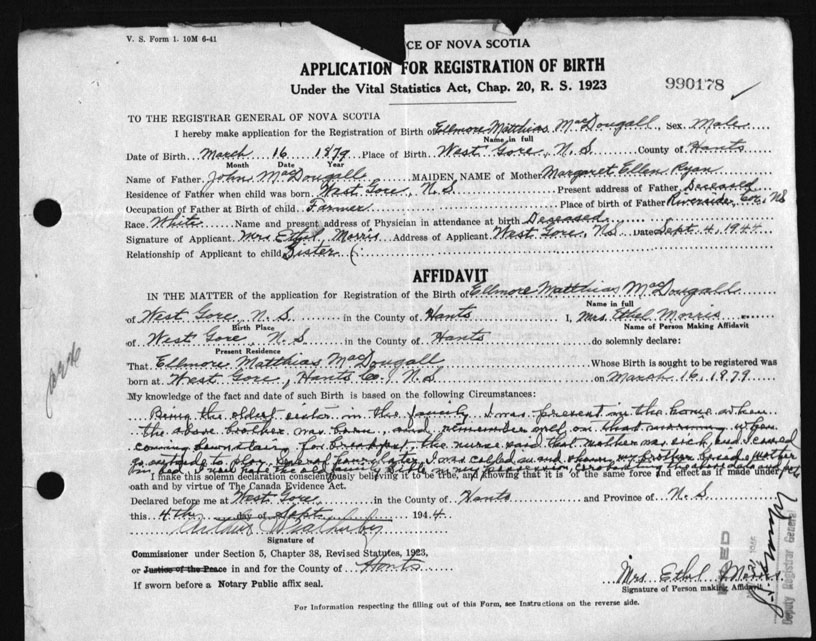 V. S. Form 1. 10M 6-41
CE OF NOVA SCOTIA
APPLICATION FOR REGISTRATION OF BIRTH
Under the Vital Statistics Act, Chap. 20, R. S. 1923
990178
TO THE REGISTRAR GENERAL OF NOVA SCOTIA
I hereby make application for the Registration of Birth of Ellmore Matthias MacDougall, Sex Male
Name in full
Date of Birth March 16 1879 Place of Birth West Gore, N. S County of Hants
Month Date Year
Name of Father John MacDougall MAIDEN NAME of Mother Margaret Ellen Ryan
Residence of Father when child was born West Gore, N. S Present address of Father Deceased
Occupation of Father at Birth of child Farmer Place of birth of Father Riverside, Co., NS
Race White Name and present address of Physician in attendance at birth Deceased
Signature of Applicant Mrs Ethel Morris Address of Applicant West Gore, NS Date Sept 4, 1944
Relationship of Applicant to child Sister (
AFFIDAVIT
IN THE MATTER of the application for Registration of the Birth of Ellmore Matthias MacDougall
Name in full
of West Gore, N. S in the County of Hants I, Mrs. Ethel Morris
Birth Place Name of Person Making Affidavit
of West Gore, N. S in the County of Hants do solemnly declare:
Present Residence
That Ellmore Matthias MacDougall Whose Birth is sought to be registered was
born at West Gore, Hants Co., N. S on March 16, 1879
My knowledge of the fact and date of such Birth is based on the following Circumstances:
Being the elder sister in the family, I was present in the home when
the above brother was born, and remember well, on that morning when
coming downstairs for breakfast, the nurse said that mother was sick, and I
go outside to play, later, I was called in and shown my brother
in bed. I have the old family Bible in my possession, the above date and
I make this solemn declaration conscientiously believing it to be true, and knowing that it is of the same force and effect as if made under
oath and by virtue of The Canada Evidence Act.
Declared before me at West Gore in the County of Hants and Province of N. S
this 4th day of Sept 1944
Signature of
Commissioner under Section 5, Chapter 38, Revised Statutes, 1923,
or Justice of the Peace in and for the County of Hants
If sworn before a Notary Public affix seal.
Mrs Ethel Morris
Signature of Person making Affidavit
For Information respecting the filling out of this Form, see Instructions on the reverse side.
Deputy Registrar General